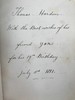 Thomas Hardwin.
With the best wishes of his
friend
for his 19th Birthday
July 5th 1881.